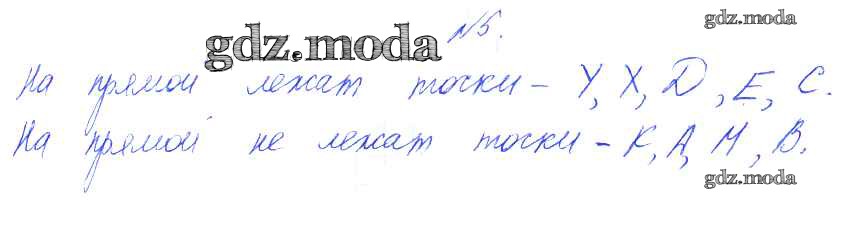 gdz.moda
№5.
gdz.moda
На прямой лежат точки - Y, X, D, E, C.
На прямой не лежат точки - K, A, M, B.
gdz.moda